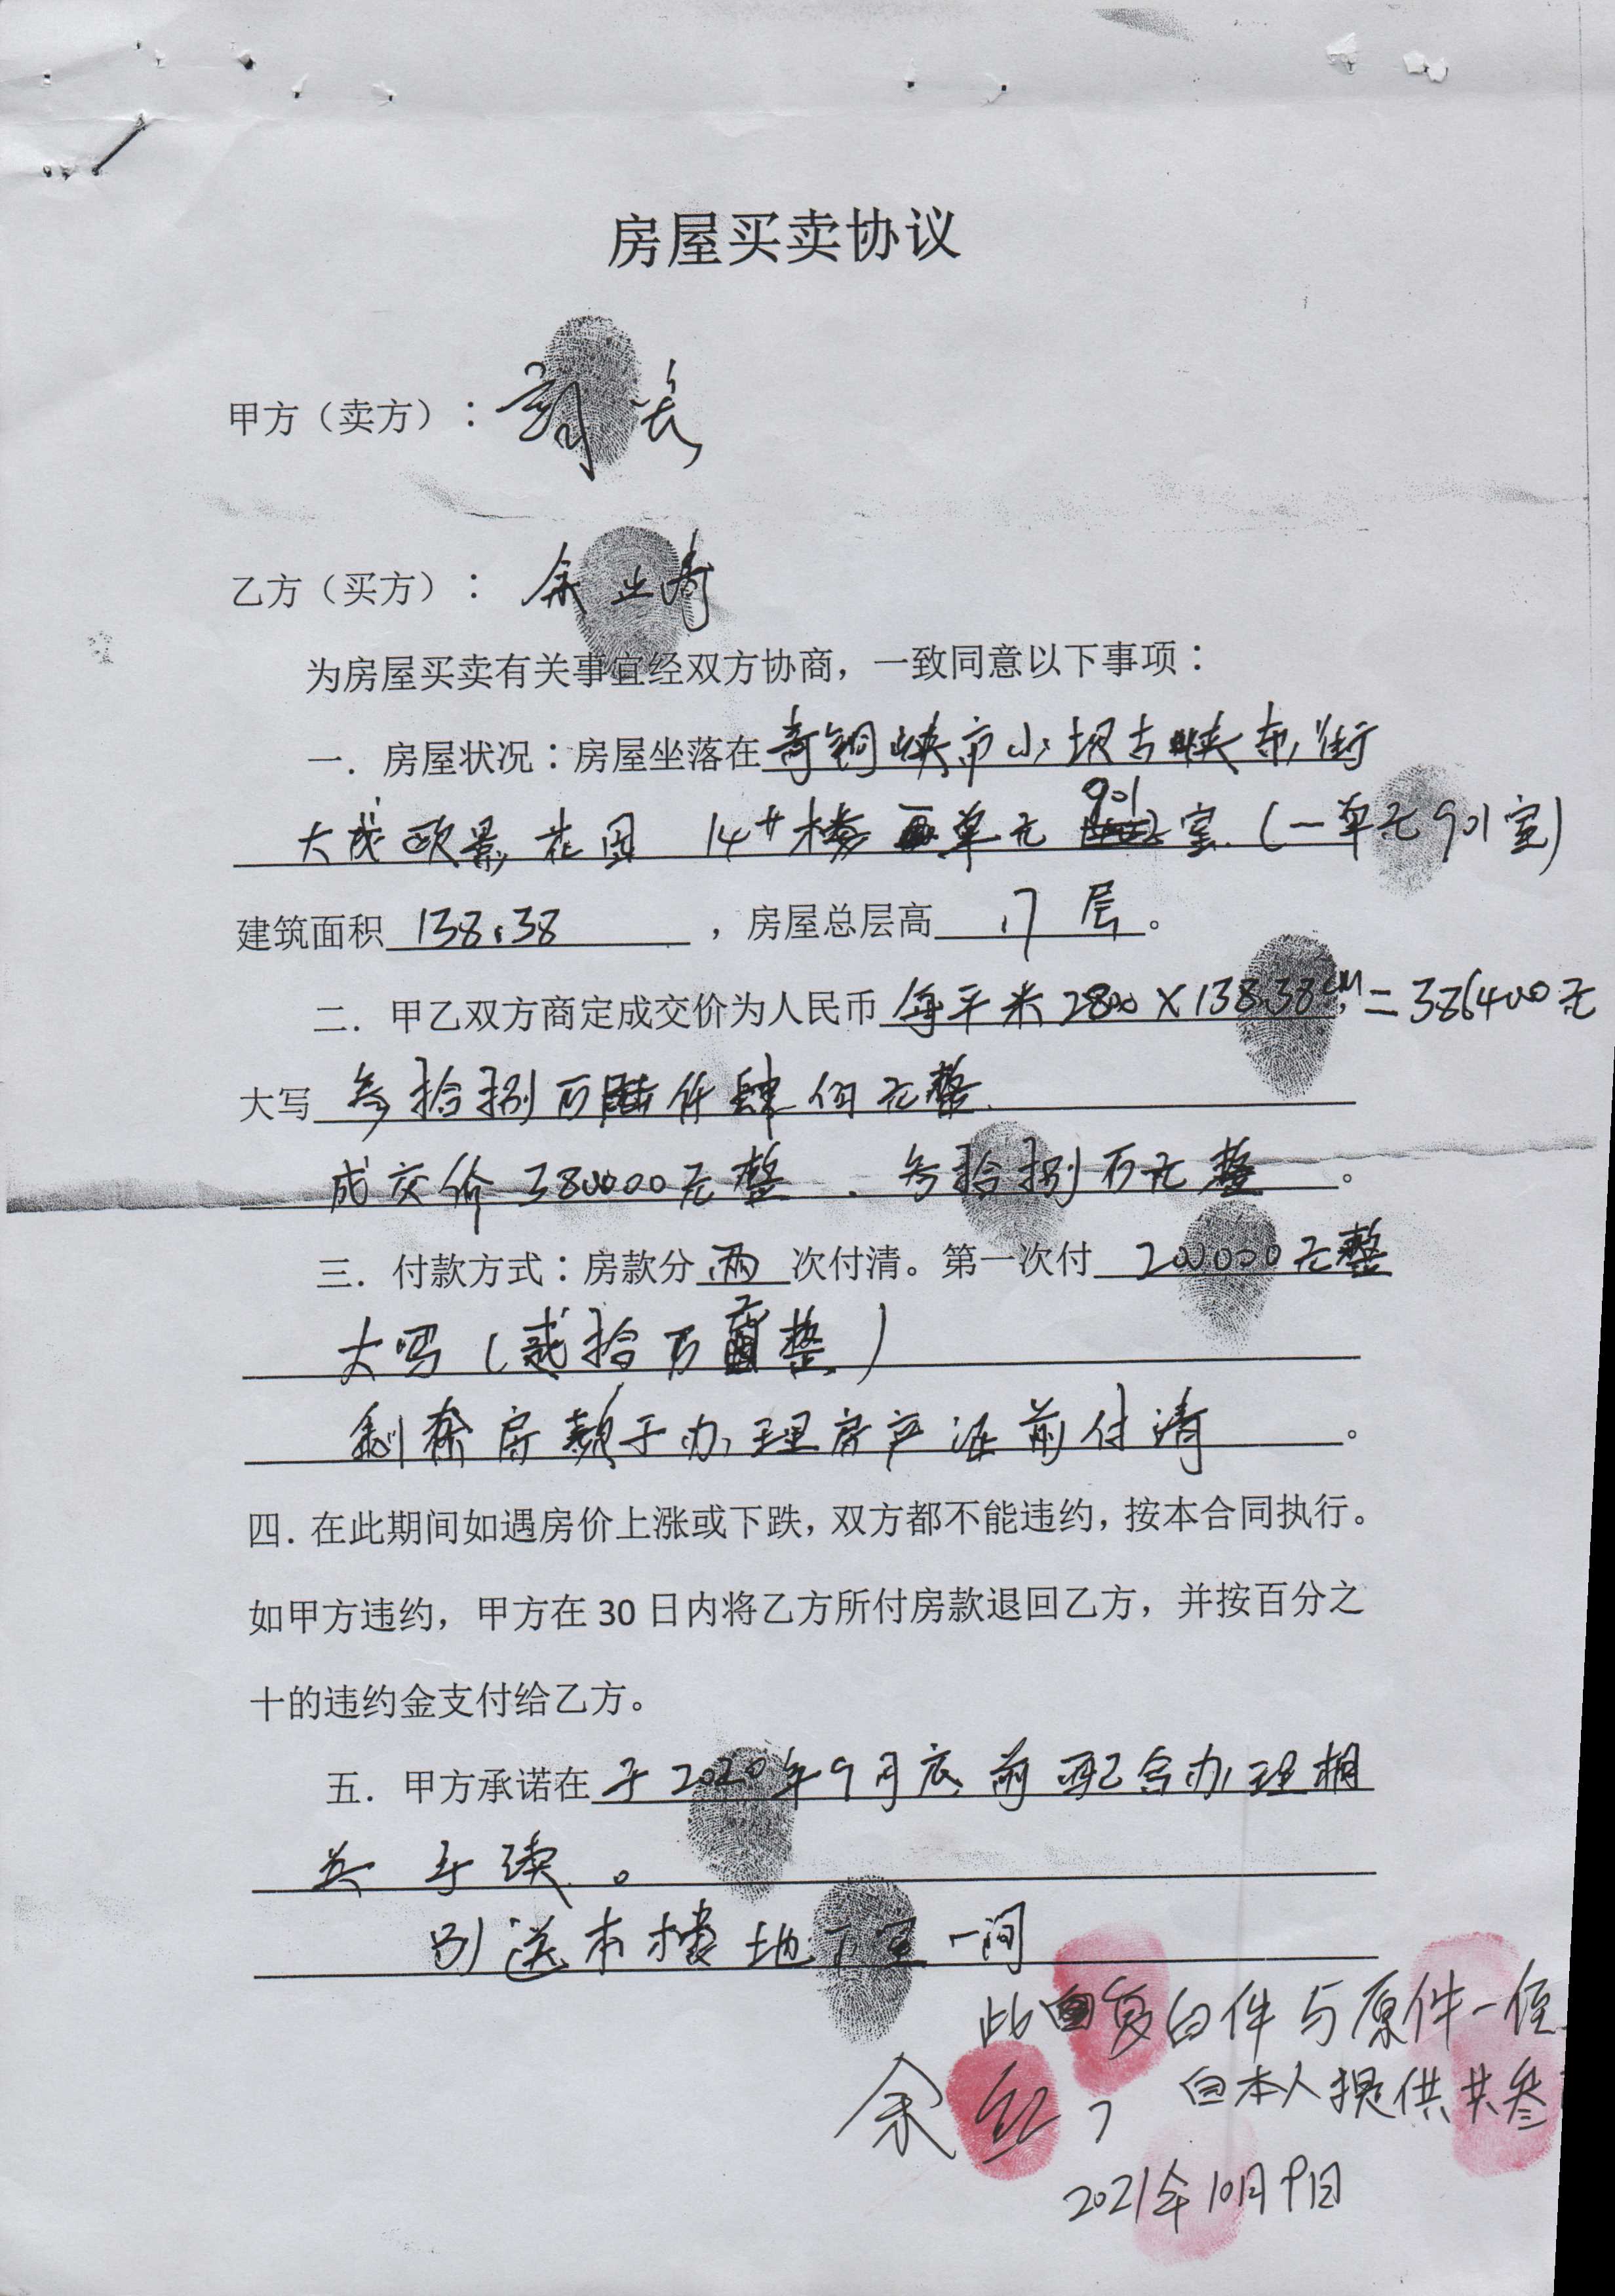 房屋买卖协议
甲方（卖方）：
乙方（买方）：余
为房屋买卖有关事宜经双方协商，一致同意以下事项：
一．房屋状况：房屋坐落在青铜峡市小坝古峡东街
大成欧景花园 14#楼 单元 901室（一单元901室）
建筑面积 138.38 ，房屋总层高 17层。
二．甲乙双方商定成交价为人民币 每平米2800×138.38㎡=386400元
大写 叁拾捌万陆仟肆佰元整
成交价380000元整．叁拾捌万元整。
三．付款方式：房款分 两 次付清。第一次付 200000元整
大写（贰拾万元整）
剩余房款于办理房产证前付清。
四．在此期间如遇房价上涨或下跌，双方都不能违约，按本合同执行。
如甲方违约，甲方在 30 日内将乙方所付房款退回乙方，并按百分之
十的违约金支付给乙方。
五．甲方承诺在 于2020年9月底前配合办理相
关手续。
另送本楼地下室一间
此复印件与原件一
由本人提供共叁
余
2021年10月9日